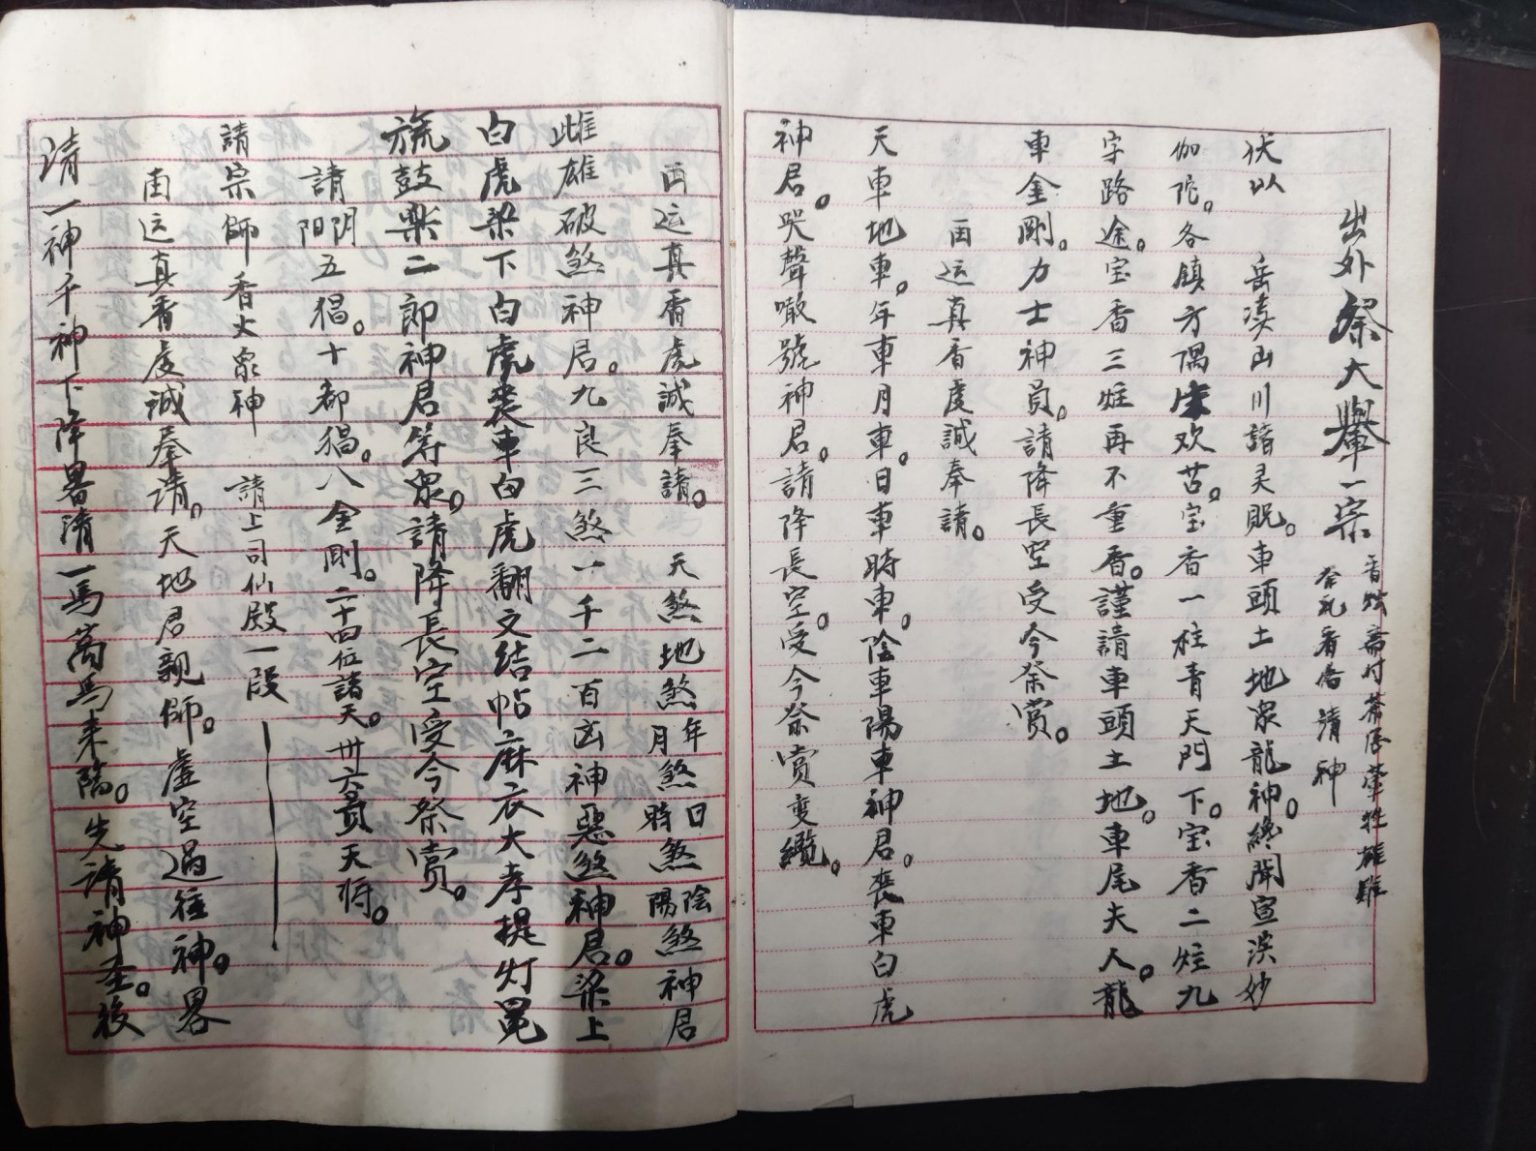 出外祭大轝一宗
香燭斋付茶居葷牲雄雞
祭礼看居請神
伏以 岳瀆山川諸灵貺。車頭土地眾龍神。終聞宣演妙
伽陀。各鎮方隅生欢苦。宝香一炷青天門下。宝香二炷九
字路途。宝香三炷再不重香。謹請車頭土地。車尾夫人。龍
車金剛。力士神員。請降長空受今祭賞。
再运真香虔誠奉請。
天車地車。年車月車。日車時車。陰車陽車神君。丧車白虎
神君。哭聲噉號神君。請降長空。受今祭賞变纜。
再运真香虔誠奉請。 天煞地煞年月煞日時煞陰陽煞神君
雌雄破煞神君。九良三煞一千二百凶神惡煞神君。梁上
白虎梁下白虎丧車白虎翻文结帖麻衣大孝提灯
旒鼓樂二郎神君等眾。請降長空受今祭賞。
請阴阳五猖。十都猖。八金剛。二十四位諸天。卅六員天将。
請宗師香火眾神 請上司仙殿一段
再运真香虔誠奉請。天地君親師。虚空過往神。畧
請一神千神下降畧請一馬萬馬来臨。先請神圣。後